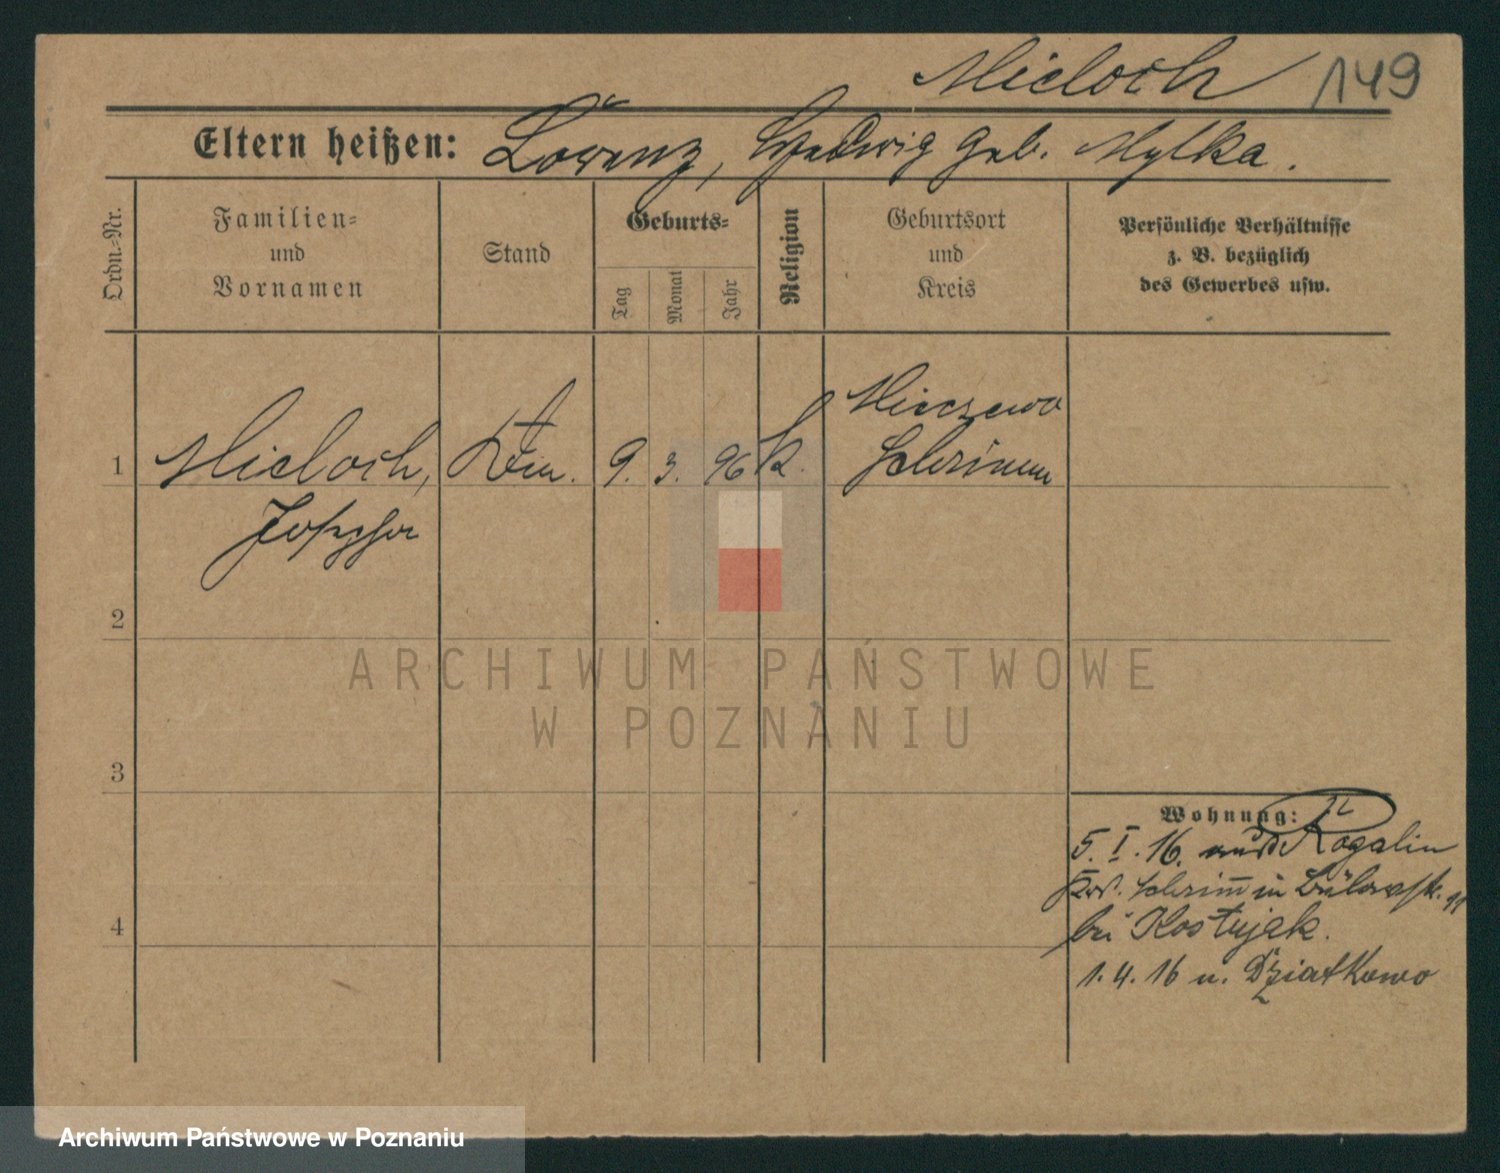 Mieloch 149
Eltern heißen: Lorenz, Hedwig geb. Mylka.
Ordn.-Nr.
Familien- und Vornamen
Stand
Geburts-
Tag
Monat
Jahr
Religion
Geburtsort und Kreis
Persönliche Verhältnisse z. B. bezüglich des Gewerbes usw.
1
Mieloch,
Josepha
9. 3. 96 k.
Mieczewo
Schrimm
2
3
4
Wohnung:
5. I. 16. aus Rogalin
Krs. Schrimm in Bülowstr. 11
bei Kostujak.
1. 4. 16 n. Dziatkowo
ARCHIWUM PAŃSTWOWE
W POZNANIU
Archiwum Państwowe w Poznaniu